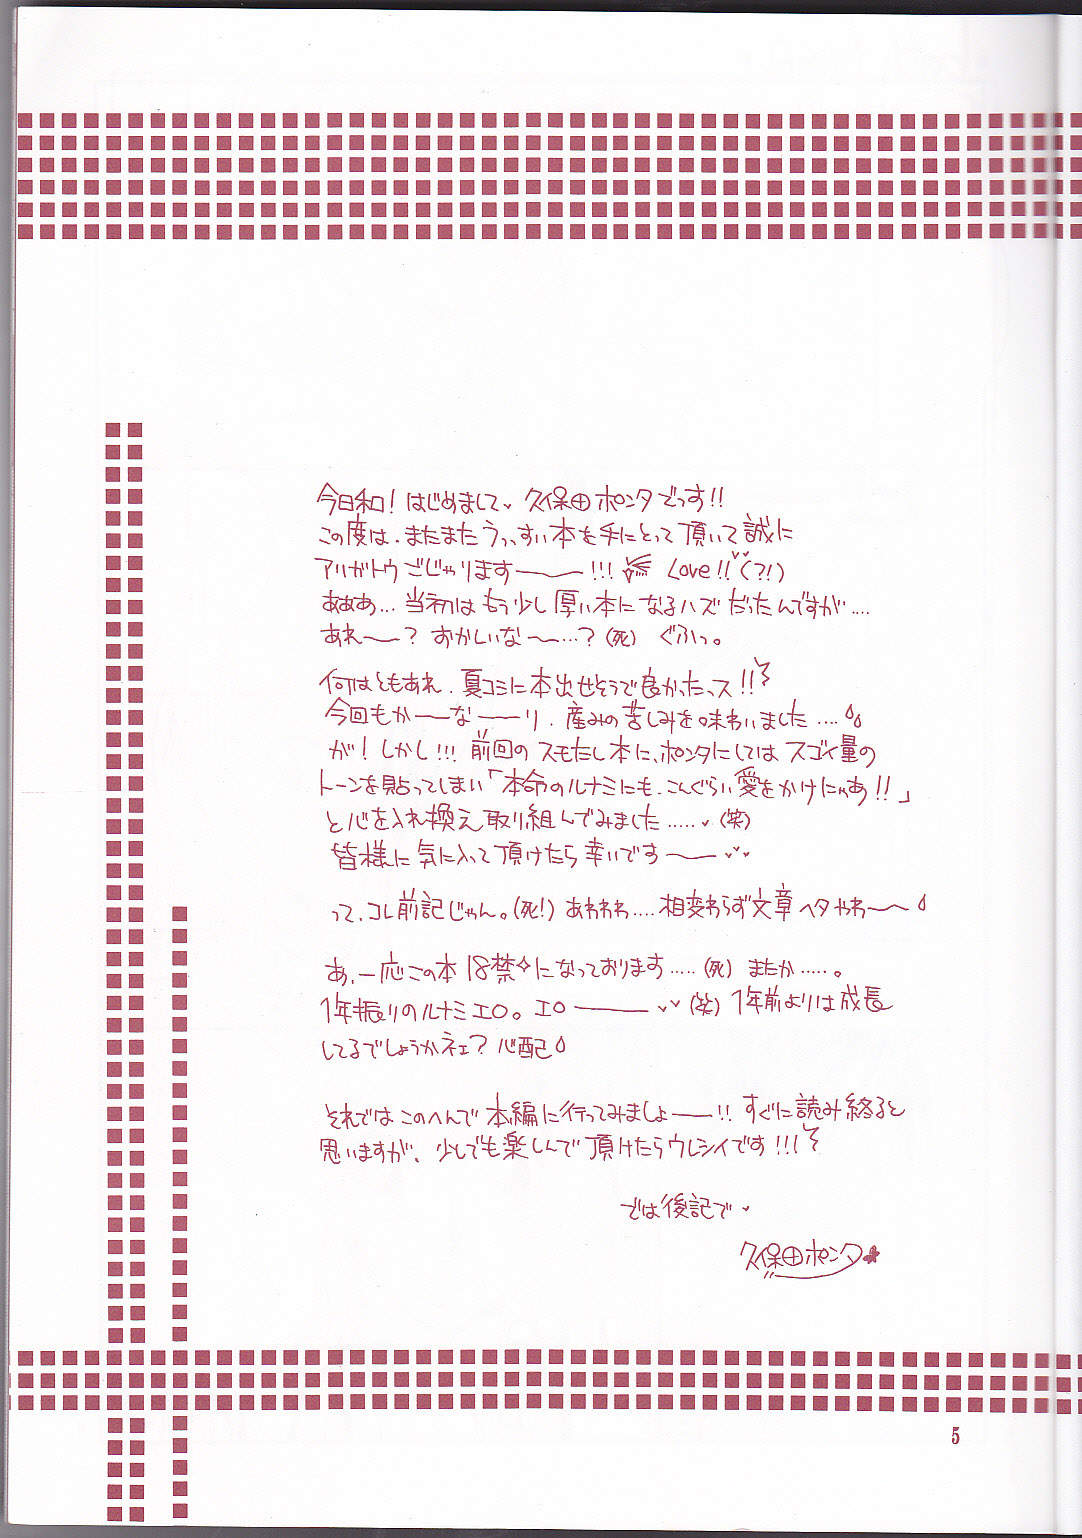 今日和!はじめまして♥久保田ポンタでっす!!
この度は、またまたうっ、すい本を手にとって頂いて誠に
アリガトウごじゃりますー――!!! Love!!♥♥(?!)
あああ…当初はもう少し厚い本になるハズだったんですが….
あれー―?おかしいなー―…?(死) ぐふっ。
何はともあれ、夏コミに本出せそうで良かったっス!!
今回もかー―なー―り、産みの苦しみを味わいました….
が!しかし!!!前回のスモたし本に、ポンタにしてはスゴイ量の
トーンを貼ってしまい「本命のルナミにも、こんぐらい愛をかけにゃあ!!」
と心を入れ換え取り組んでみました…..♥(笑)
皆様に気に入って頂けたら幸いですー――♥♥
って、コレ前記じゃん。(死!)あわわわ….相変わらず文章ヘタやわー〜
あ、一応この本18禁✧になっております…..(死)またか…..。
1年振りのルナミエロ。エロー――♥♥(笑)1年前よりは成長
してるでしょうかネェ?心配
それではこのへんで本編に行ってみましょー――!!すぐに読み終ると
思いますが、少しでも楽しんで頂けたらウレシイです!!!
では後記で♥
久保田ポンタ
5